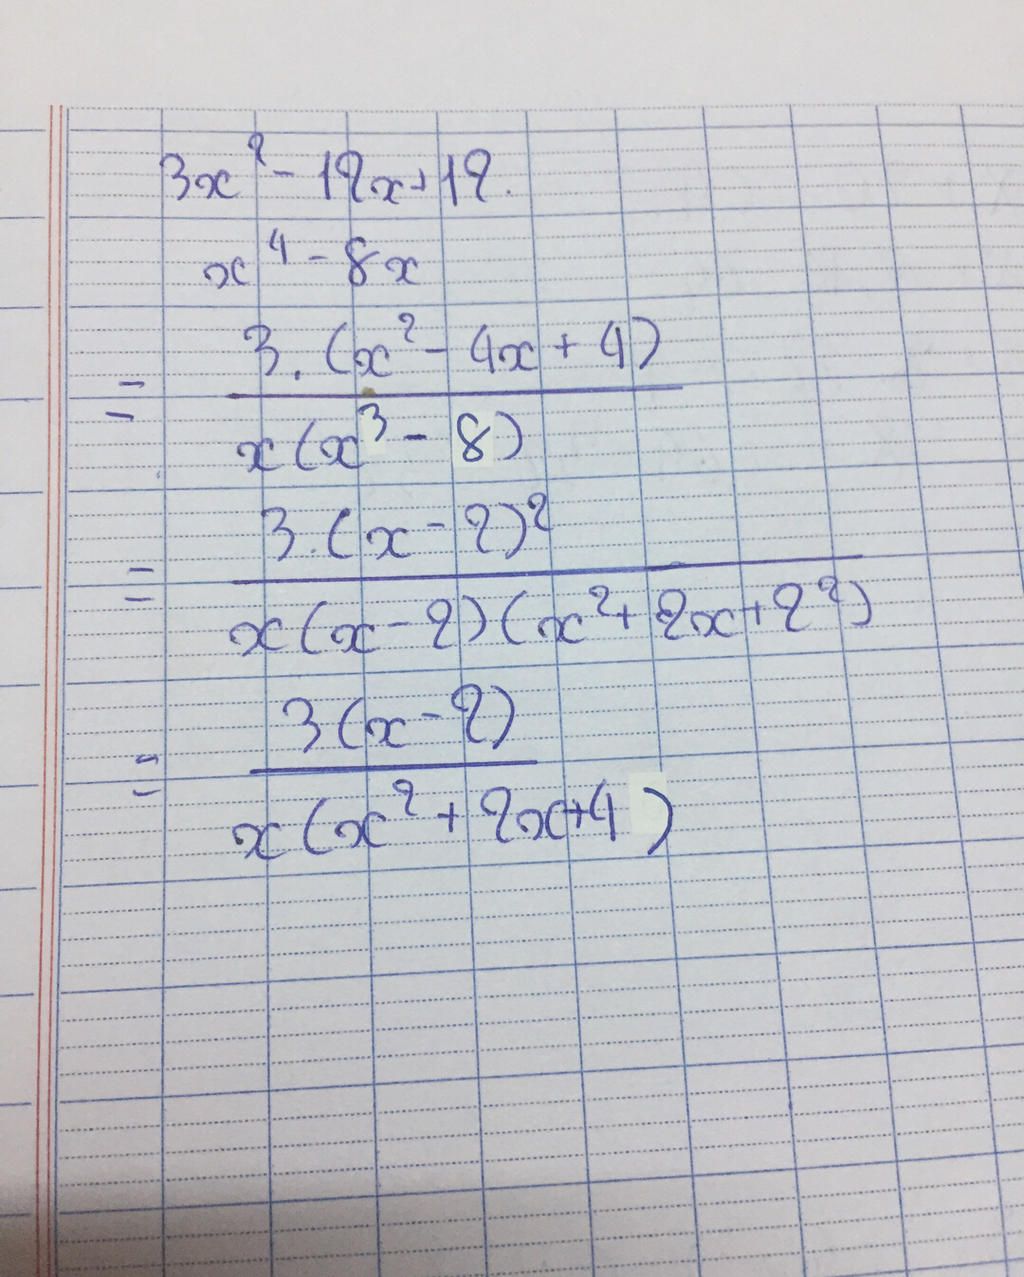 3x² - 12x + 12.
x⁴ - 8x
3.(x² - 4x + 4)
=
x(x³ - 8)
3.(x - 2)²
=
x(x - 2)(x² + 2x + 2²)
3(x - 2)
=
x(x² + 2x + 4)